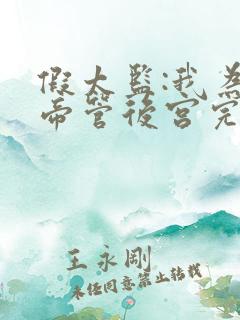 假太监:我为
帝管後宫完
王永刚
未经同意禁止转载